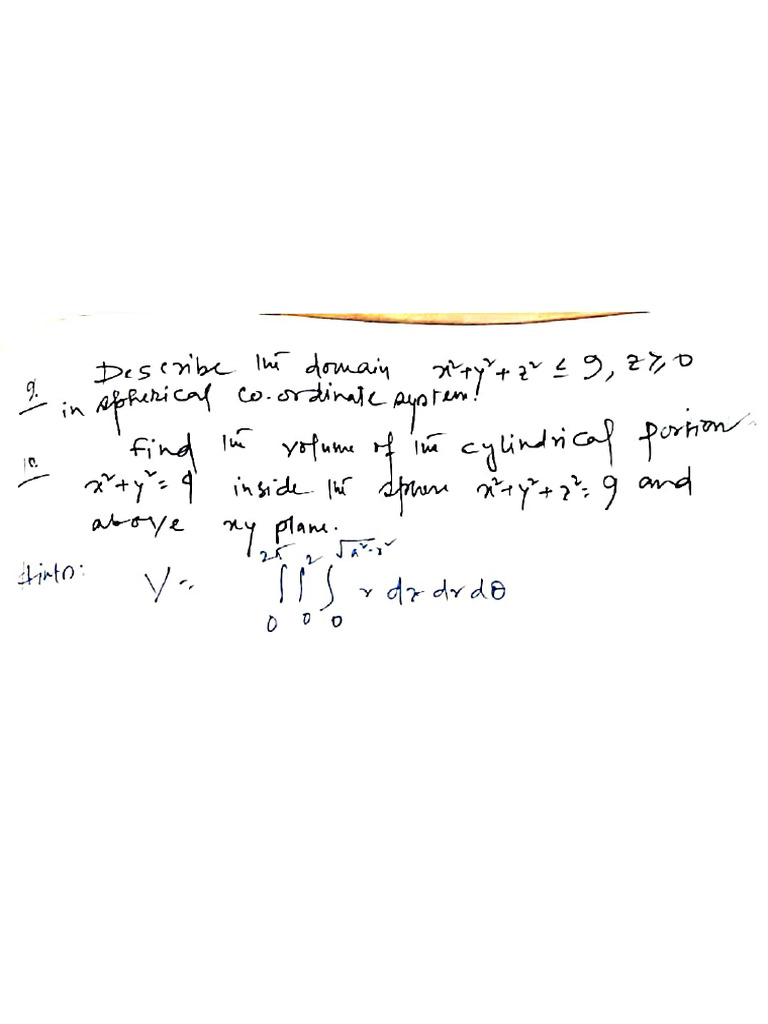 9. Describe the domain x²+y²+z² ≤ 9, z ≥ 0
in spherical co-ordinate system!
10. Find the volume of the cylindrical portion
x²+y²=4 inside the sphere x²+y²+z²=9 and
above xy plane.
Hints: V = ∫₀^{2π} ∫₀^{2} ∫₀^{√a²-r²} r dz dr dθ